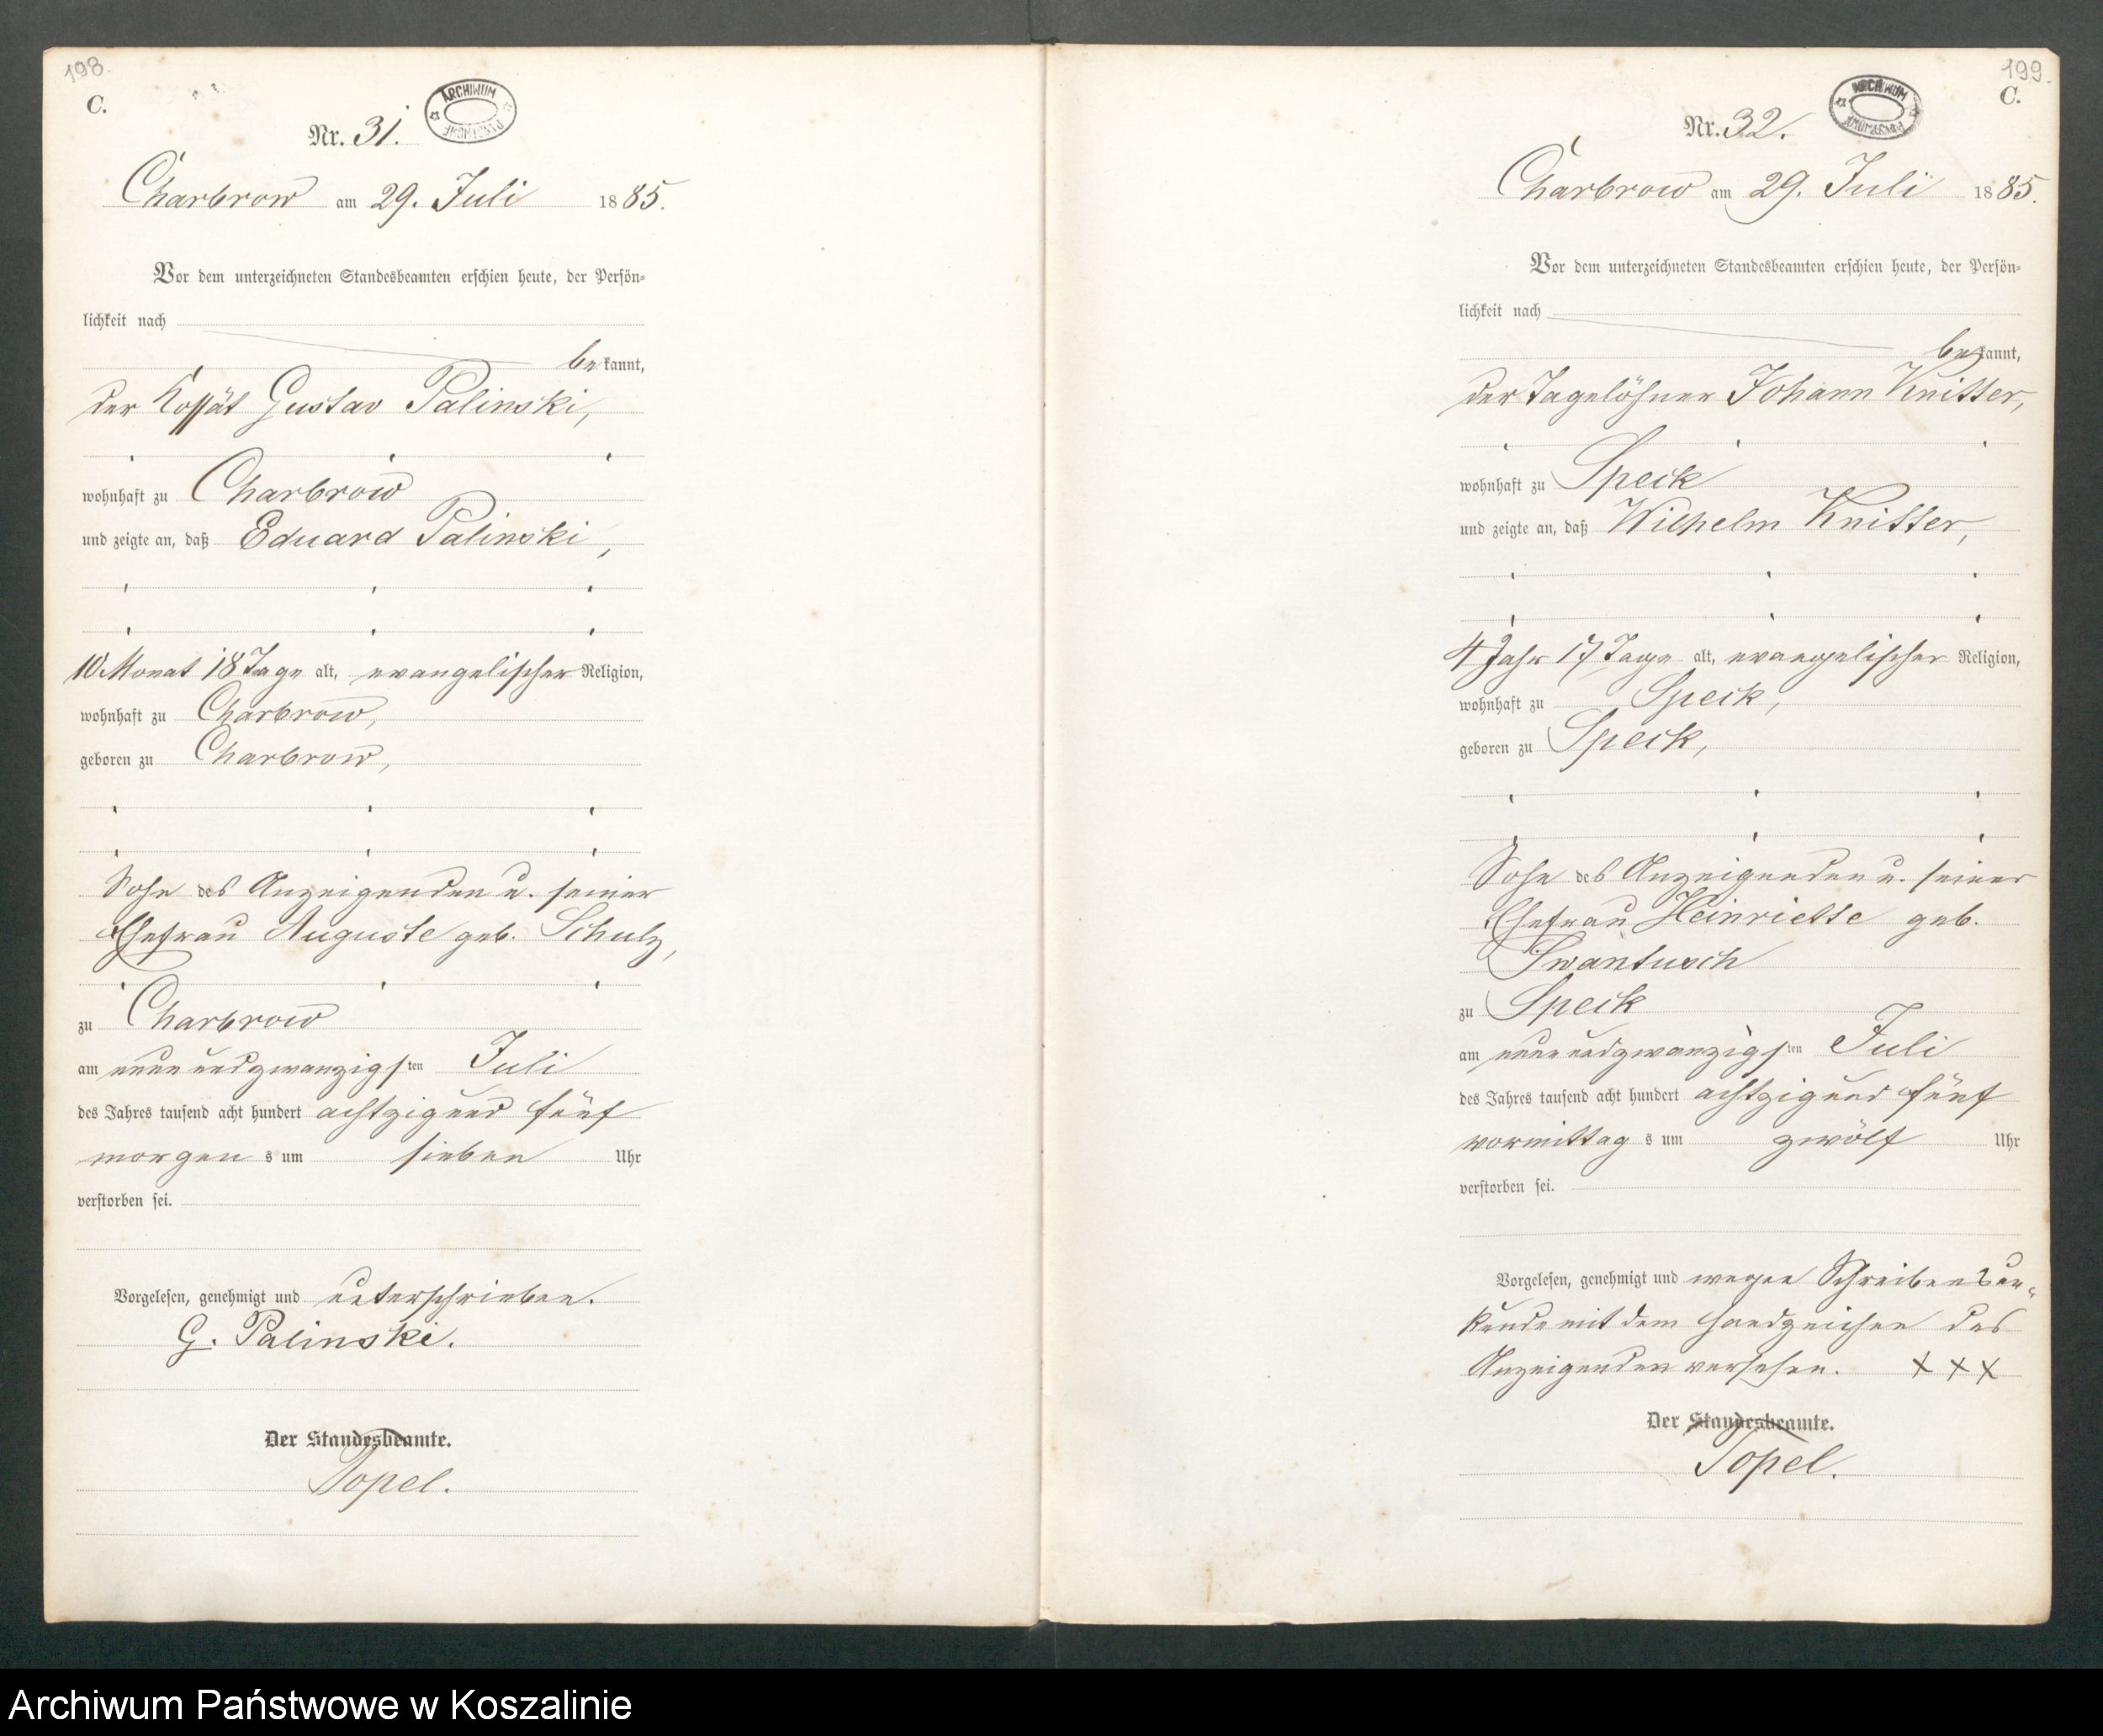 198.
C.
ARCHIWUM PAŃSTWOWE
Nr. 31.
Charbrow am 29. Juli 1885.
Vor dem unterzeichneten Standesbeamten erschien heute, der Persön-
lichkeit nach
bekannt,
der Kossät Gustav Palinski,
wohnhaft zu Charbrow
und zeigte an, daß Eduard Palinski,
10 Monat 18 Tage alt, evangelischer Religion,
wohnhaft zu Charbrow,
geboren zu Charbrow,
Sohn des Anzeigenden u. seiner
Ehefrau Auguste geb. Schulz,
zu Charbrow
am neun und zwanzigsten Juli
des Jahres tausend acht hundert achtzig und fünf
morgens um sieben Uhr
verstorben sei.
Vorgelesen, genehmigt und unterschrieben.
G. Palinski.
Der Standesbeamte.
Topel.
199.
C.
ARCHIWUM PAŃSTWOWE
Nr. 32.
Charbrow am 29. Juli 1885.
Vor dem unterzeichneten Standesbeamten erschien heute, der Persön-
lichkeit nach
bekannt,
der Tagelöhner Johann Knitter,
wohnhaft zu Speck
und zeigte an, daß Wilhelm Knitter,
4 Jahr 17 Tage alt, evangelischer Religion,
wohnhaft zu Speck,
geboren zu Speck,
Sohn des Anzeigenden u. seiner
Ehefrau Heinriette geb.
Swantusch
zu Speck
am neun und zwanzigsten Juli
des Jahres tausend acht hundert achtzig und fünf
vormittags um zwölf Uhr
verstorben sei.
Vorgelesen, genehmigt und wegen Schreibensun-
kunde mit dem Handzeichen des
Anzeigenden versehen. XXX
Der Standesbeamte.
Topel.
Archiwum Państwowe w Koszalinie